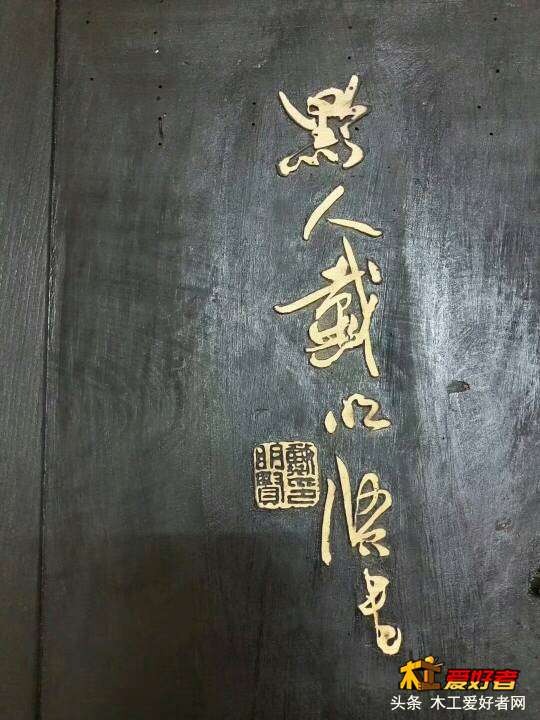 黔人戴明賢书
戴印明賢
木工爱好者
头条 木工爱好者网